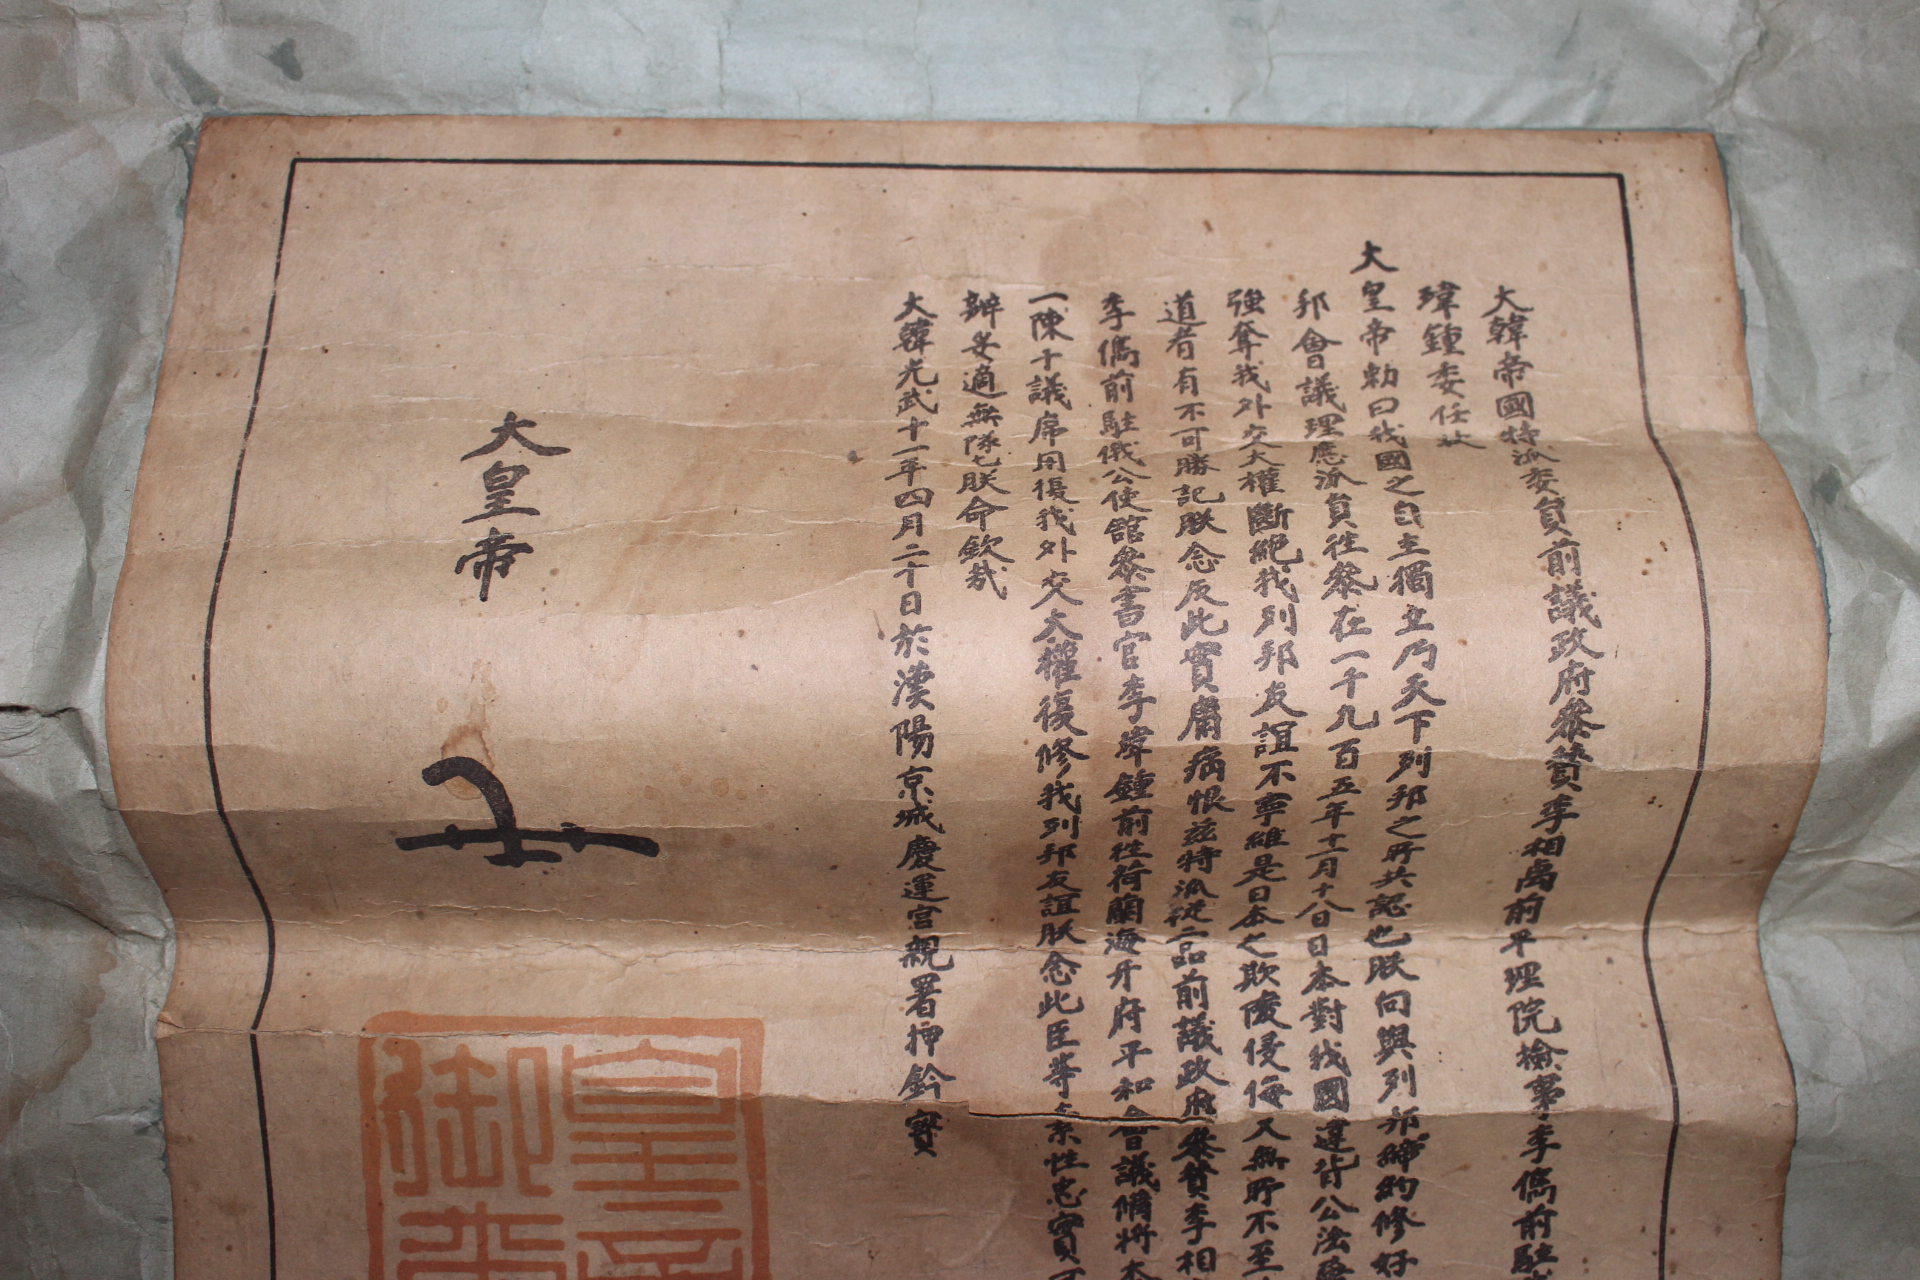 大韓帝國特派委員前議政府參贊李相卨前平理院檢事李儁前駐
瑋鍾委任狀
大皇帝勅曰我國之自主獨立乃天下列邦之所共認也朕向與列邦締約修好
邦會議理應派員往參在一千九百五年十一月十八日日本對我國違背公法
強奪我外交大權斷絕我列邦友誼不寧維是日本之欺凌侵侮又無所不至
道者有不可勝記朕念及此實庸痛恨玆特派從二品前議政府參贊李相
李儁前駐俄公使館參書官李瑋鍾前往荷蘭海牙府平和會議備將本
一陳于議席用復我外交大權復修我列邦友誼朕念此臣等素性忠實
辦妥適無隊也朕命欽哉
大韓光武十一年四月二十日於漢陽京城慶運宮親署押鈐寶
大皇帝
皇
御